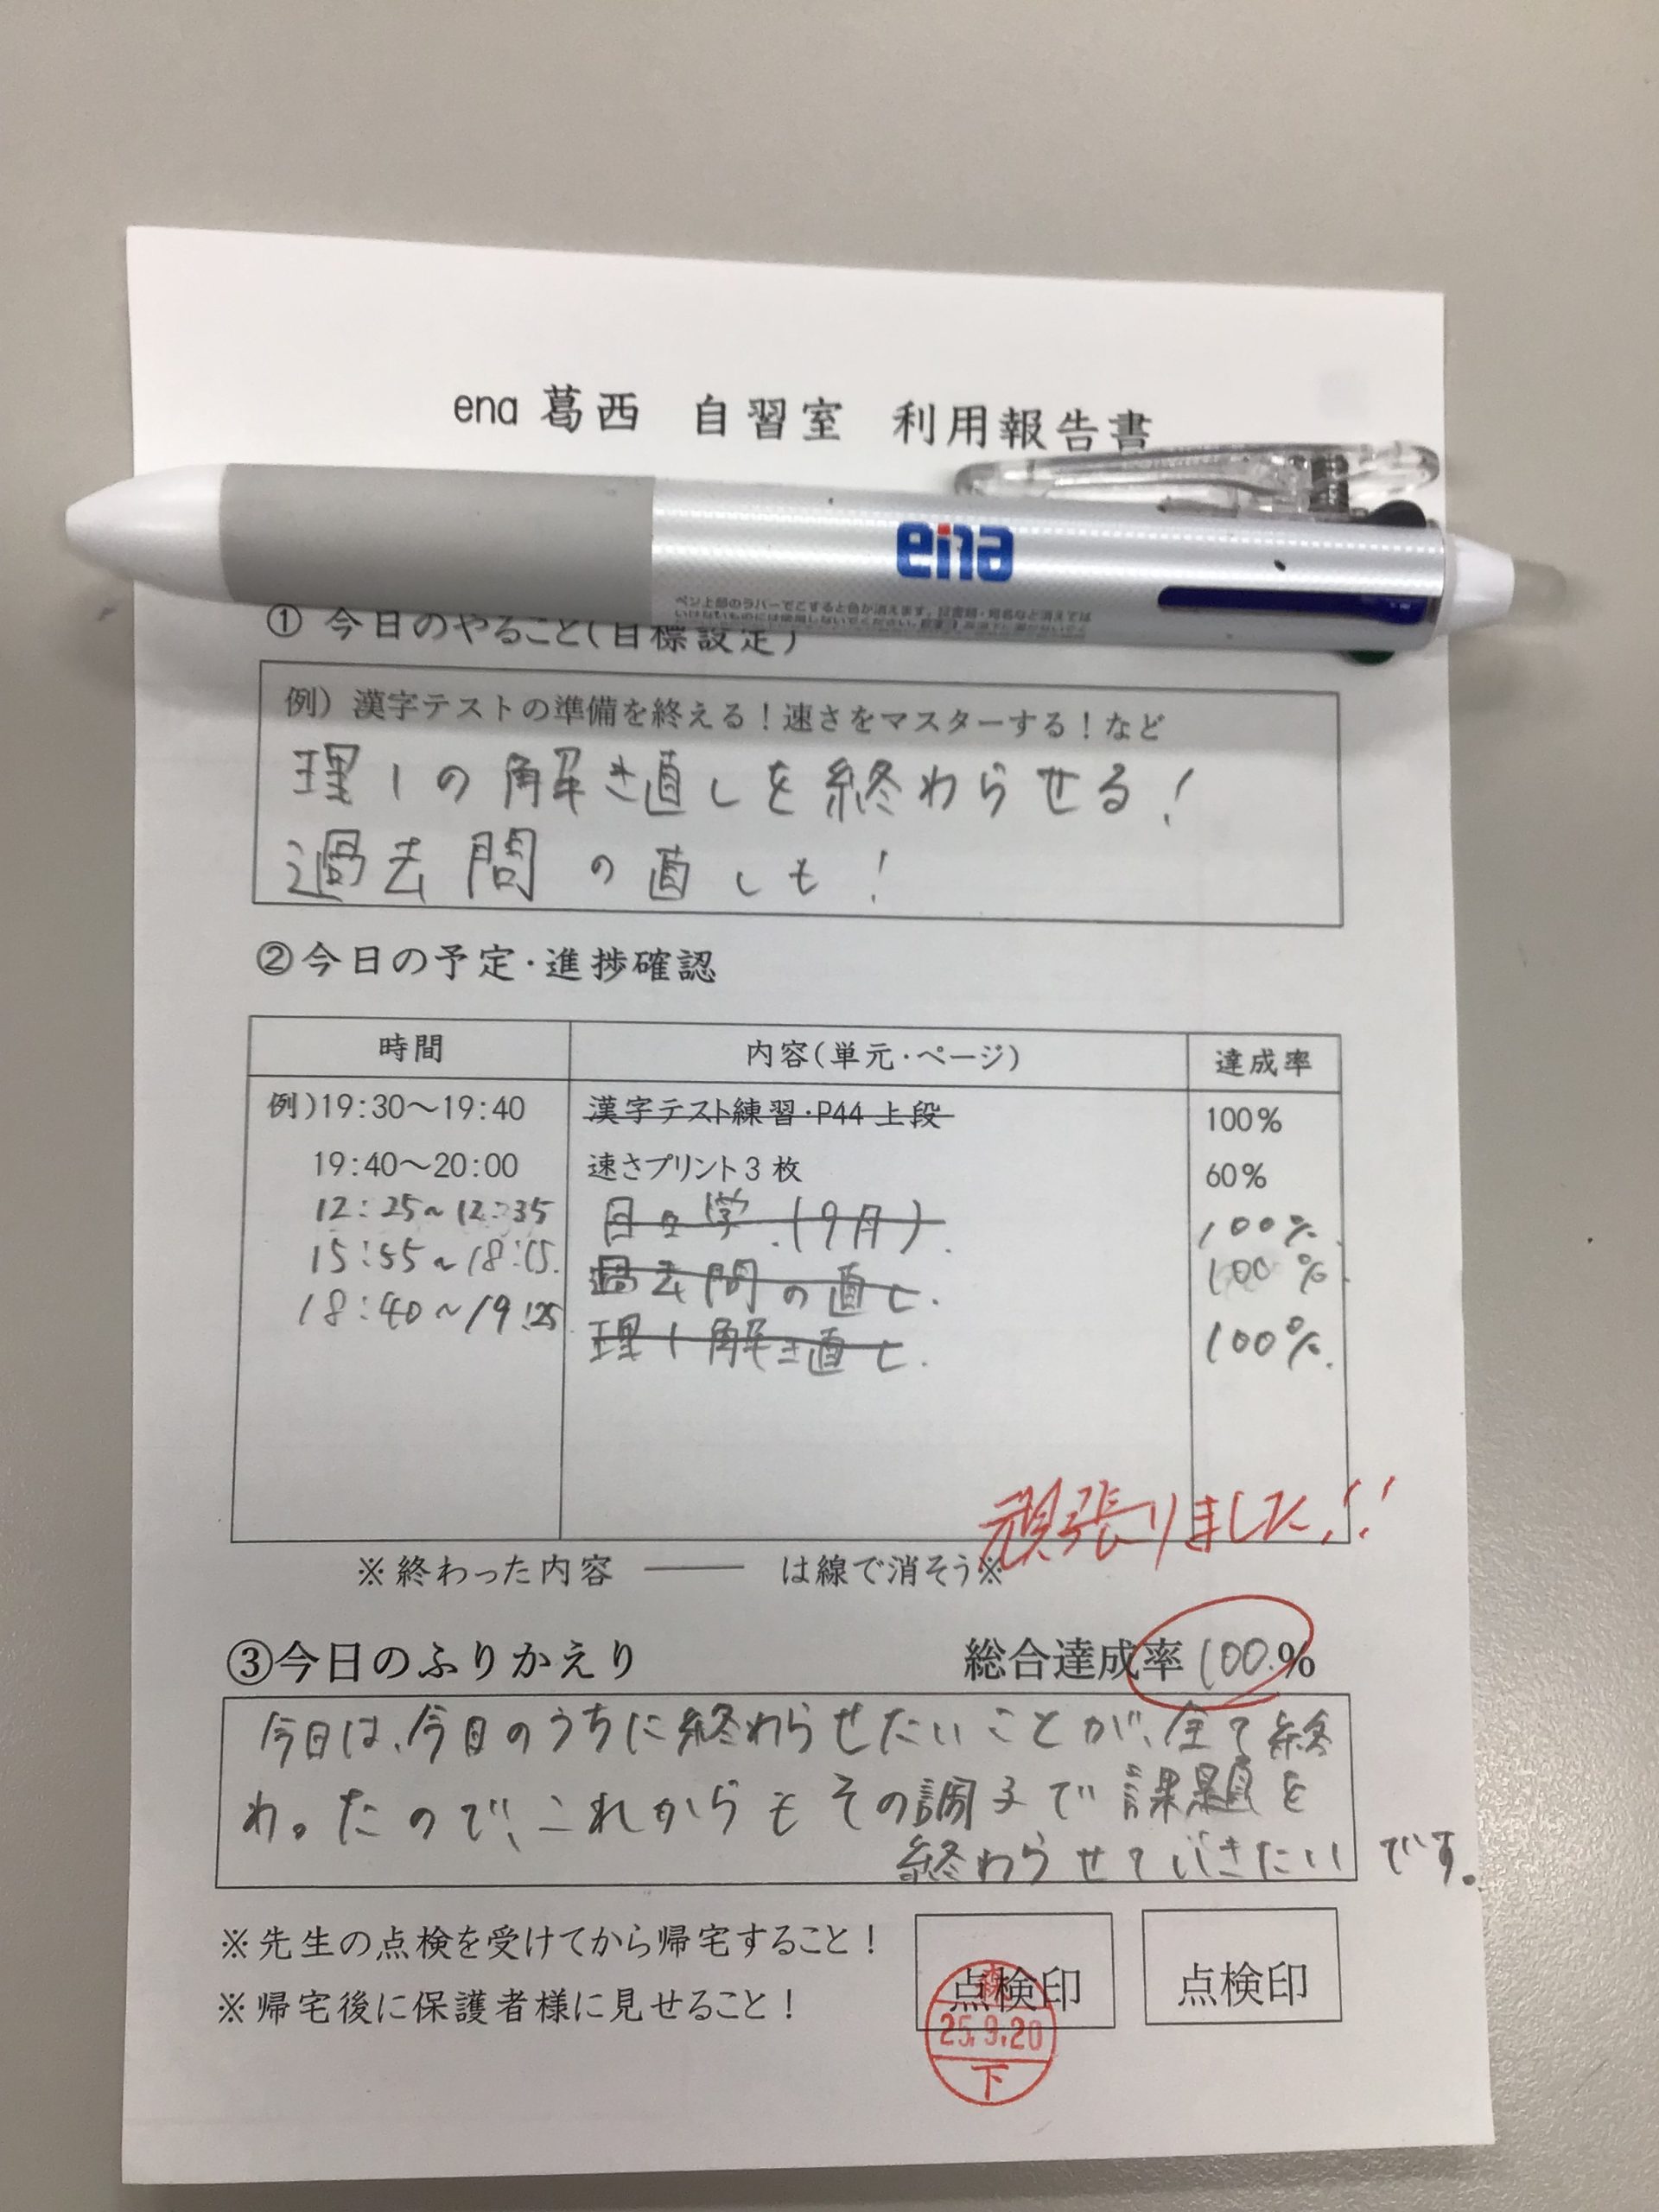 ena 葛西 自習室 利用報告書
ena
ペン上部のラバーでこすると色が消えます。
① 今日のやること(目標設定)
例) 漢字テストの準備を終える!速さをマスターする!など
理1の解き直しを終わらせる!
過去問の直しも!
②今日の予定・進捗確認
時間 内容(単元・ページ) 達成率
例)19:30~19:40 漢字テスト練習・P44 上段 100%
19:40~20:00 速さプリント3枚 60%
12:25~12:35 日々学.(9月). 100%.
15:55~18:15. 過去問の直し. 100%.
18:40~19:25 理1解き直し. 100%.
頑張りました!!
※終わった内容 ―― は線で消そう※
③今日のふりかえり 総合達成率 100.%
今日は、今日のうちに終わらせたいことが、全て終
わったので、これからもその調子で課題を
終わらせていきたいです。
※先生の点検を受けてから帰宅すること!
※帰宅後に保護者様に見せること!
点検印 点検印
25.9.20
下